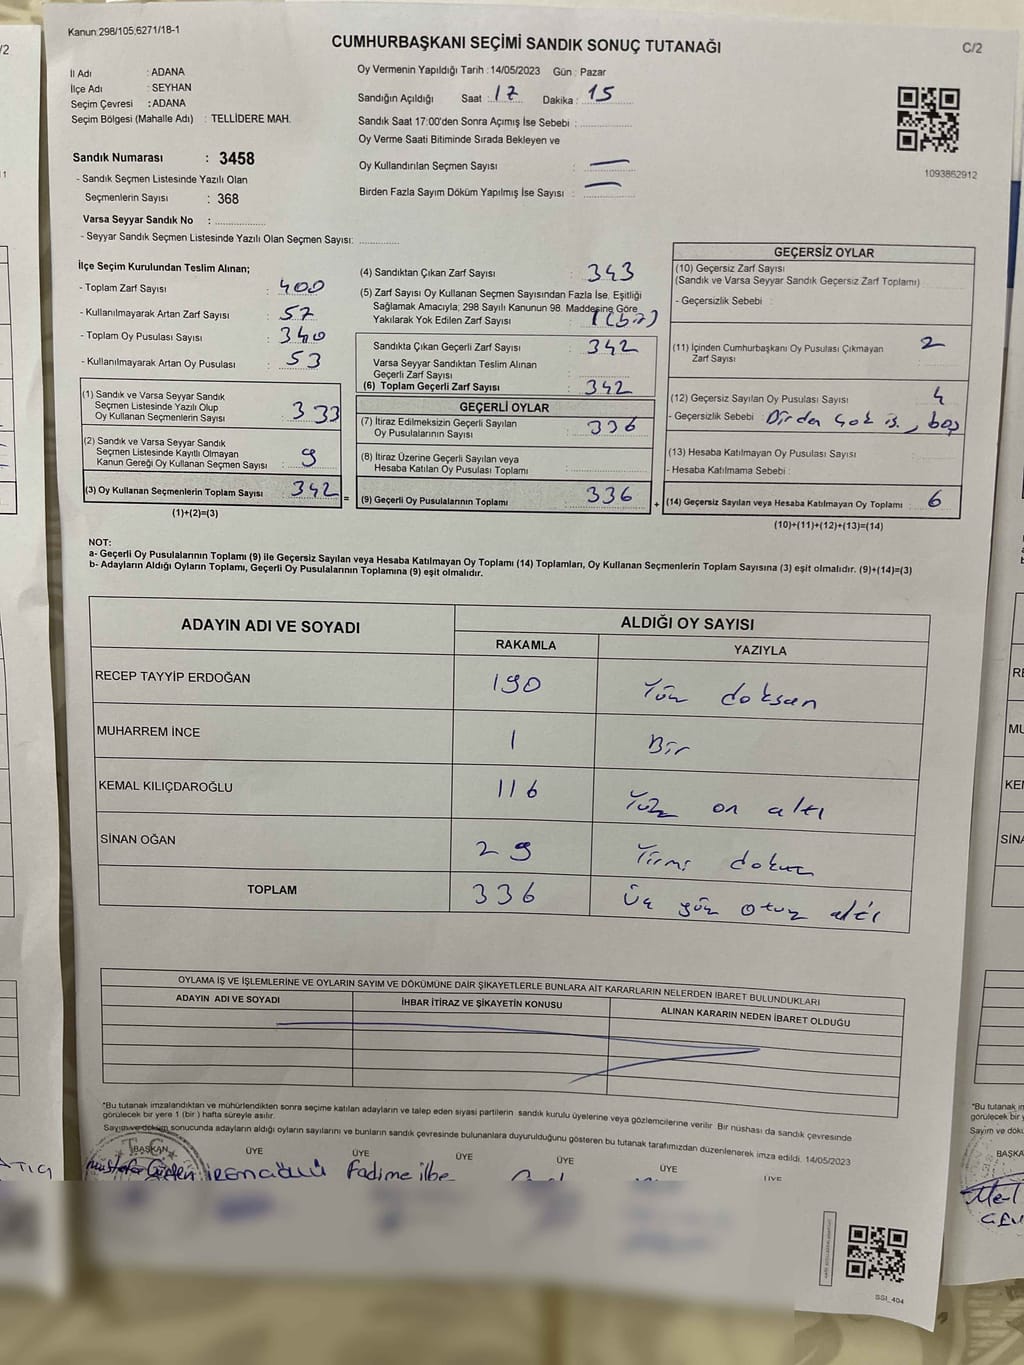 Kanun:298/105,6271/18-1
CUMHURBAŞKANI SEÇİMİ SANDIK SONUÇ TUTANAĞI
C/2
İl Adı : ADANA
İlçe Adı : SEYHAN
Seçim Çevresi : ADANA
Seçim Bölgesi (Mahalle Adı) : TELLİDERE MAH.
Oy Vermenin Yapıldığı Tarih : 14/05/2023 Gün : Pazar
Sandığın Açıldığı Saat : 17 Dakika : 15
Sandık Saat 17:00'den Sonra Açımış İse Sebebi :
Oy Verme Saati Bitiminde Sırada Bekleyen ve
Oy Kullandırılan Seçmen Sayısı : —
Birden Fazla Sayım Döküm Yapılmış İse Sayısı : —
1093862912
Sandık Numarası : 3458
- Sandık Seçmen Listesinde Yazılı Olan
Seçmenlerin Sayısı : 368
Varsa Seyyar Sandık No :
- Seyyar Sandık Seçmen Listesinde Yazılı Olan Seçmen Sayısı:
İlçe Seçim Kurulundan Teslim Alınan;
- Toplam Zarf Sayısı : 400
- Kullanılmayarak Artan Zarf Sayısı : 57
- Toplam Oy Pusulası Sayısı : 340
- Kullanılmayarak Artan Oy Pusulası : 53
(1) Sandık ve Varsa Seyyar Sandık
Seçmen Listesinde Yazılı Olup
Oy Kullanan Seçmenlerin Sayısı : 333
(2) Sandık ve Varsa Seyyar Sandık
Seçmen Listesinde Kayıtlı Olmayan
Kanun Gereği Oy Kullanan Seçmen Sayısı : 9
(3) Oy Kullanan Seçmenlerin Toplam Sayısı : 342 =
(1)+(2)=(3)
(4) Sandıktan Çıkan Zarf Sayısı : 343
(5) Zarf Sayısı Oy Kullanan Seçmen Sayısından Fazla İse, Eşitliği
Sağlamak Amacıyla; 298 Sayılı Kanunun 98. Maddesine Göre
Yakılarak Yok Edilen Zarf Sayısı : 1
Sandıkta Çıkan Geçerli Zarf Sayısı : 342
Varsa Seyyar Sandıktan Teslim Alınan
Geçerli Zarf Sayısı :
(6) Toplam Geçerli Zarf Sayısı : 342
GEÇERLİ OYLAR
(7) İtiraz Edilmeksizin Geçerli Sayılan
Oy Pusulalarının Sayısı : 336
(8) İtiraz Üzerine Geçerli Sayılan veya
Hesaba Katılan Oy Pusulası Toplamı :
(9) Geçerli Oy Pusulalarının Toplamı : 336 +
GEÇERSİZ OYLAR
(10) Geçersiz Zarf Sayısı
(Sandık ve Varsa Seyyar Sandık Geçersiz Zarf Toplamı)
- Geçersizlik Sebebi :
(11) İçinden Cumhurbaşkanı Oy Pusulası Çıkmayan
Zarf Sayısı : 2
(12) Geçersiz Sayılan Oy Pusulası Sayısı : 4
- Geçersizlik Sebebi : Birden çok iş., boş
(13) Hesaba Katılmayan Oy Pusulası Sayısı :
- Hesaba Katılmama Sebebi :
(14) Geçersiz Sayılan veya Hesaba Katılmayan Oy Toplamı : 6
(10)+(11)+(12)+(13)=(14)
NOT:
a- Geçerli Oy Pusulalarının Toplamı (9) ile Geçersiz Sayılan veya Hesaba Katılmayan Oy Toplamı (14) Toplamları, Oy Kullanan Seçmenlerin Toplam Sayısına (3) eşit olmalıdır. (9)+(14)=(3)
b- Adayların Aldığı Oyların Toplamı, Geçerli Oy Pusulalarının Toplamına (9) eşit olmalıdır.
ADAYIN ADI VE SOYADI ALDIĞI OY SAYISI
RAKAMLA YAZIYLA
RECEP TAYYİP ERDOĞAN 190 Yüz doksan
MUHARREM İNCE 1 Bir
KEMAL KILIÇDAROĞLU 116 Yüz on altı
SİNAN OĞAN 29 Yirmi dokuz
TOPLAM 336 Üç yüz otuz altı
OYLAMA İŞ VE İŞLEMLERİNE VE OYLARIN SAYIM VE DÖKÜMÜNE DAİR ŞİKAYETLERLE BUNLARA AİT KARARLARIN NELERDEN İBARET BULUNDUKLARI
ADAYIN ADI VE SOYADI İHBAR İTİRAZ VE ŞİKAYETİN KONUSU ALINAN KARARIN NEDEN İBARET OLDUĞU
*Bu tutanak imzalandıktan ve mühürlendikten sonra seçime katılan adayların ve talep eden siyasi partilerin sandık kurulu üyelerine veya gözlemcilerine verilir. Bir nüshası da sandık çevresinde
görülecek bir yere 1 (bir) hafta süreyle asılır.
Sayım ve döküm sonucunda adayların aldığı oyların sayılarını ve bunların sandık çevresinde bulunanlara duyurulduğunu gösteren bu tutanak tarafımızdan düzenlenerek imza edildi. 14/05/2023
BAŞKAN ÜYE ÜYE ÜYE ÜYE ÜYE ÜYE
Mustafa Fadime ilbe
SSI_404